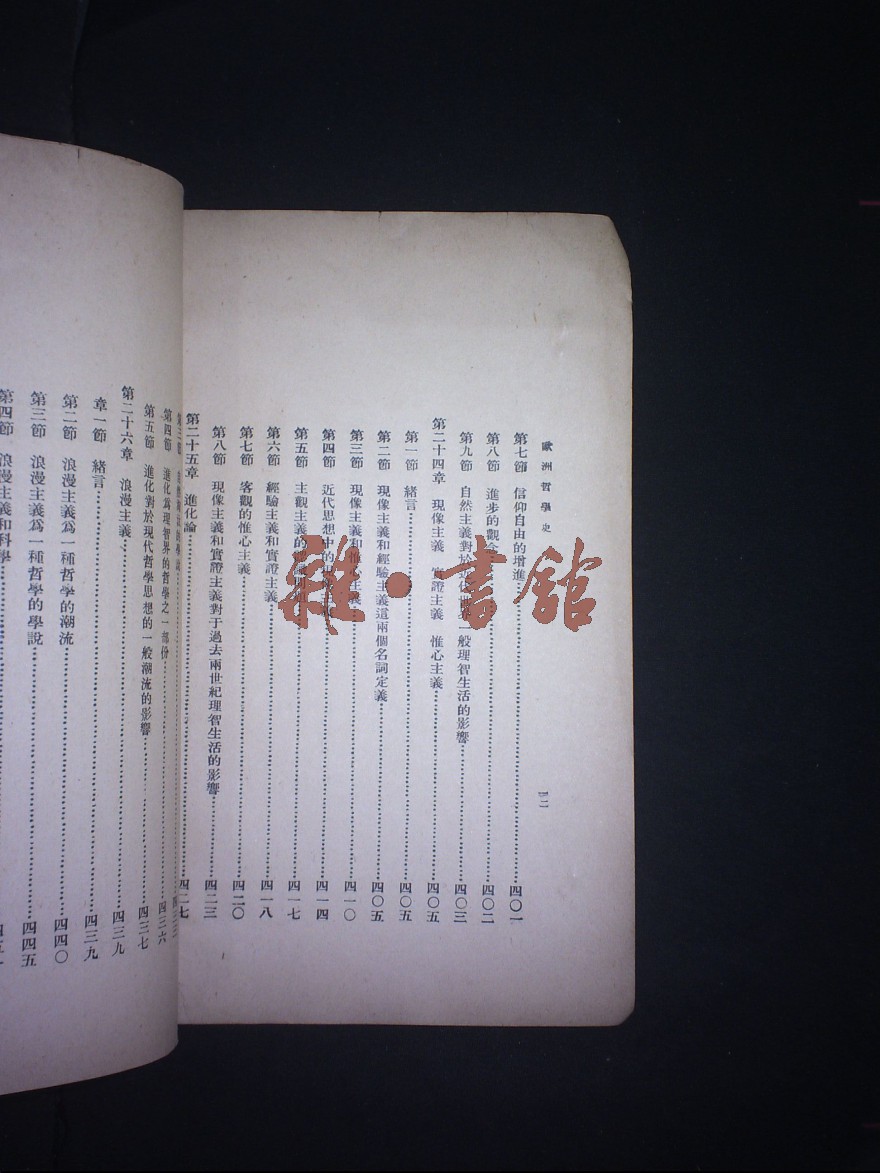 歐洲哲學史
第七節 信仰自由的增進 四〇一
第八節 進步的觀念 四〇二
第九節 自然主義對於近代 一般理智生活的影響 四〇三
第二十四章 現像主義 實證主義 惟心主義 四〇五
第一節 緒言 四〇五
第二節 現像主義和經驗主義這兩個名詞定義 四〇五
第三節 現像主義和惟心主義 四一〇
第四節 近代思想中的 四一四
第五節 主觀主義的 四一七
第六節 經驗主義和實證主義 四一八
第七節 客觀的惟心主義 四二〇
第八節 現像主義和實證主義對于過去兩世紀理智生活的影響 四二三
第二十五章 進化論 四二七
第四節 進化為理智界的哲學之一部份 四三六
第五節 進化對於現代哲學思想的一般潮流的影響 四三七
第二十六章 浪漫主義 四三九
章一節 緒言 四三九
第二節 浪漫主義為一種哲學的潮流 四四〇
第三節 浪漫主義為一種哲學的學說 四四五
第四節 浪漫主義和科學
雜·書館